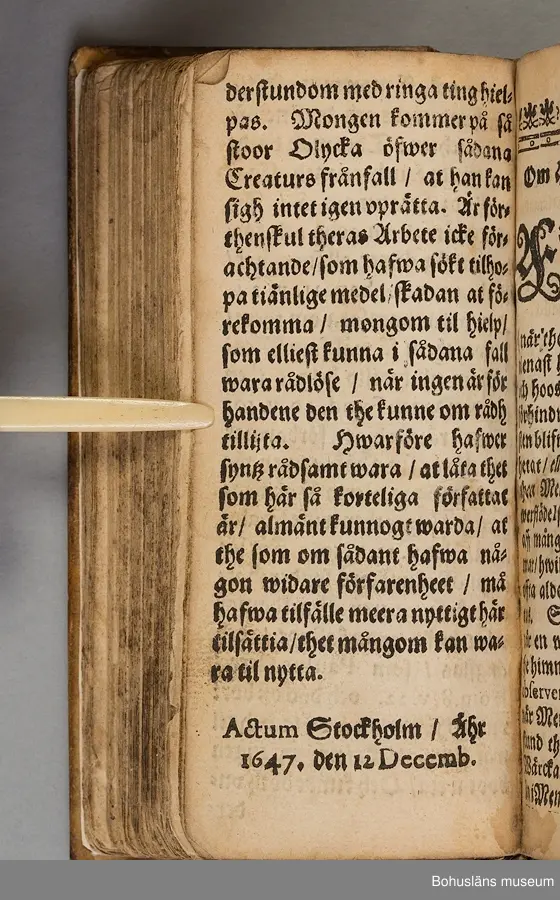 derstundom med ringa ting hiel⸗
pas. Mongen kommer på så
stoor Olycka öfwer sådana
Creaturs frånfall / at han kan
sigh intet igen vprätta. Är för⸗
thenskul theras Arbete icke för⸗
achtande/som hafwa sökt tilho⸗
pa tiänlige medel/skadan at fö⸗
rekomma / mongom til hielp/
som elliest kunna i sådana fall
wara rådlöse / när ingen är för
handene den the kunne om rådh
tillijta. Hwarföre hafwer
syntz rådsamt wara / at låta thet
som här så korteliga författat
är/ almänt kunnogt warda/ at
the som om sådant hafwa nå⸗
gon widare förfarenheet / må
hafwa tilfälle meera nyttigt här
tilsättia/thet mångom kan wa⸗
ra til nytta.
Actum Stockholm / Åhr
1647. den 12 Decemb.
Om
när the
hoos
en w
observe
när Me
i Men
Bohusläns museum